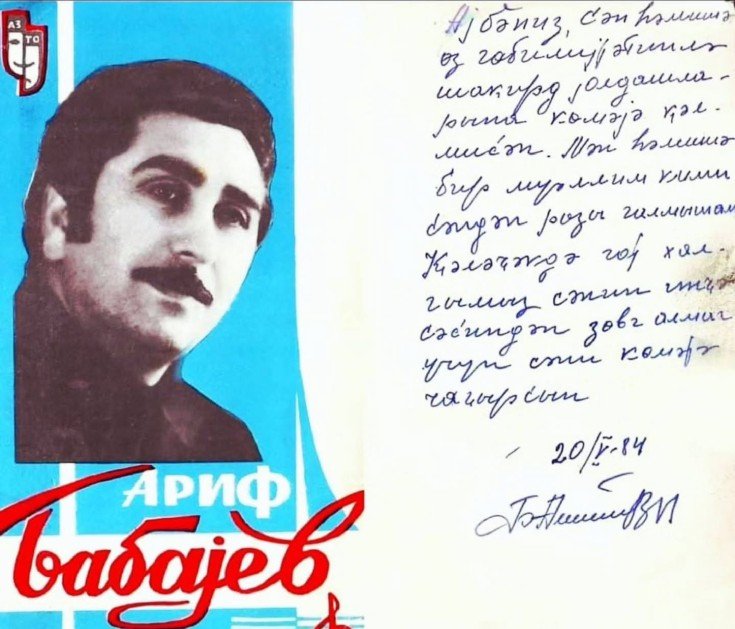 АЗ
ТО
АРИФ
Бабајев
Ајбәниз, сән һәмишә
өз габилијјәтинлә
шакирд јолдашла-
рына көмәјә ҝәл-
мисән. Мән һәмишә
бир мүәллим кими
сәндән разы галмышам
Ҝәләҹәкдә гој хал-
гымыз сәнин инҹә
сәсиндән зөвг алмаг
үчүн сәни көмәјә
чағырсын
20/V-84